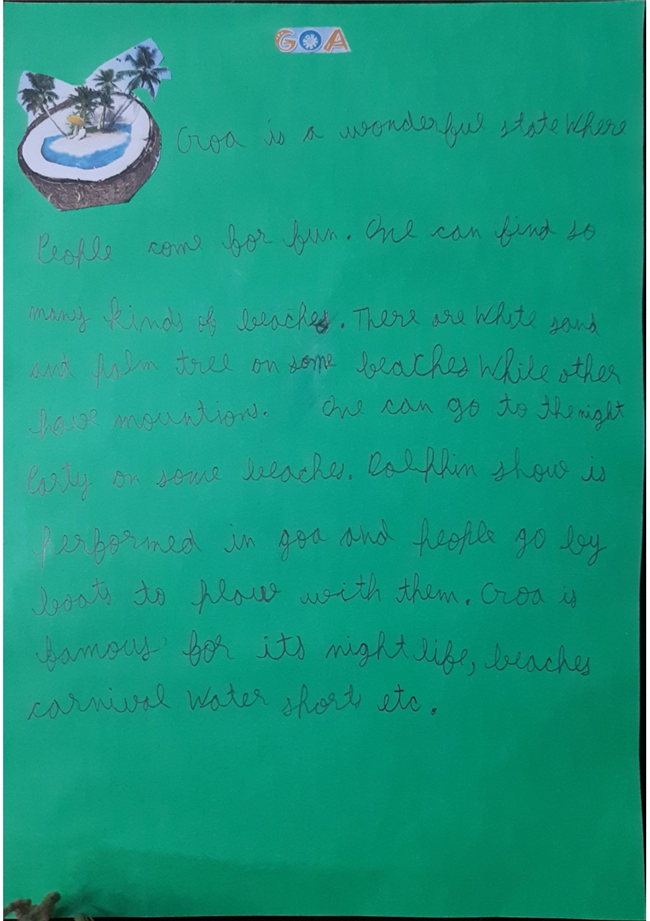 GOA
Goa is a wonderful state Where
People come for fun. One can find so
many kinds of beaches. There are White sand
and palm tree on some beaches While other
have mountions. One can go to the night
Party on some beaches. Dolphin show is
performed in goa and people go by
boats to plow with them. Goa is
famous for its night life, beaches
carnival Water shorts etc.